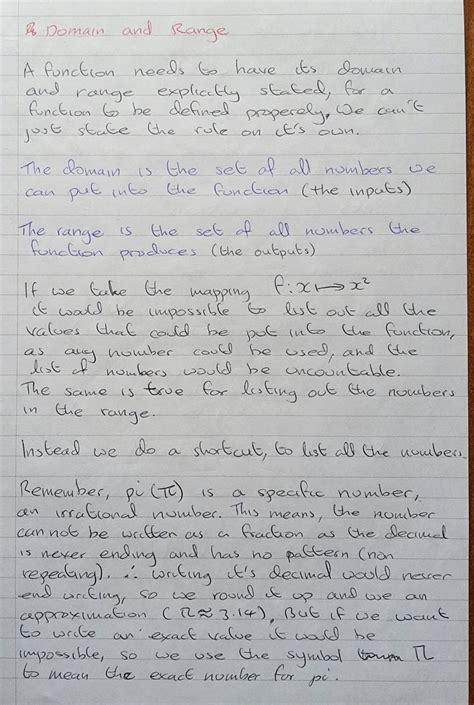 Domain and Range
A function needs to have its domain
and range explicitly stated, for a
function to be defined properely, We can't
just state the rule on it's own.
The domain is the set of all numbers we
can put into the function (the inputs)
The range is the set of all numbers the
function produces (the outputs)
If we take the mapping f:x↦x²
it would be impossible to list out all the
values that could be put into the function,
as any number could be used, and the
list of numbers would be uncountable.
The same is true for listing out the numbers
in the range.
Instead we do a shortcut, to list all the numbers.
Remember, pi (π) is a specific number,
an irrational number. This means, the number
can not be written as a fraction as the decimal
is never ending and has no pattern (non
repeating). ∴ writing it's decimal would never
end writing, so we round it up and we an
approximation (π≈3.14), But if we want
to write an exact value it would be
impossible, so we use the symbol π
to mean the exact number for pi.